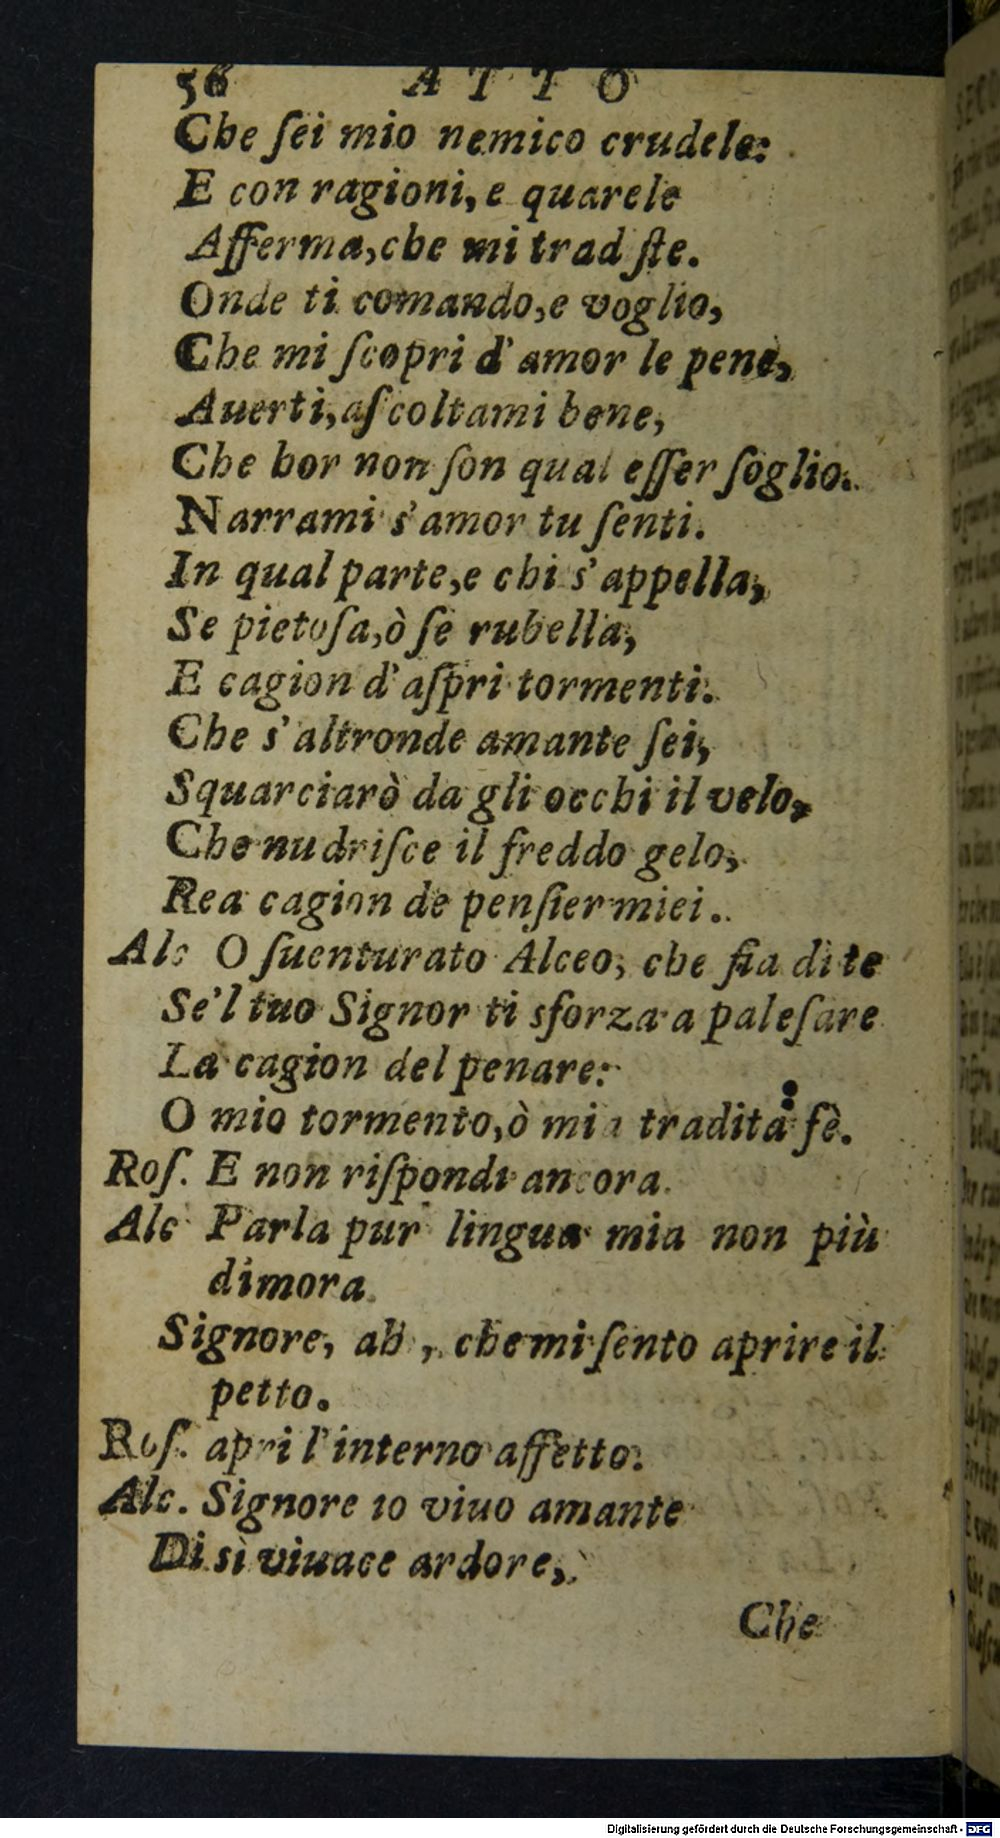 56 ATTO
Che ſei mio nemico crudele:
E con ragioni, e quarele
Afferma, che mi trad ſte.
Onde ti comando, e voglio,
Che mi ſcopri d'amor le pene,
Auerti, aſcoltami bene,
Che hor non ſon qual eſſer ſoglio.
Narrami s'amor tu ſenti.
In qual parte, e chi s'appella,
Se pietoſa, ò ſe rubella,
E cagion d'aſpri tormenti.
Che s'altronde amante ſei,
Squarciarò da gli occhi il velo,
Che nudriſce il freddo gelo,
Rea cagion de penſier miei.
Alc O ſuenturato Alceo, che fia di te
Se'l tuo Signor ti sforza a paleſare
La cagion del penare:
O mio tormento, ò mia tradita fè.
Roſ. E non riſpondi ancora.
Alc Parla pur lingua mia non più
dimora.
Signore, ah, che mi ſento aprire il
petto.
Roſ. apri l'interno affetto.
Alc. Signore io viuo amante
Di sì viuace ardore,
Che
Digitalisierung gefördert durch die Deutsche Forschungsgemeinschaft - DFG